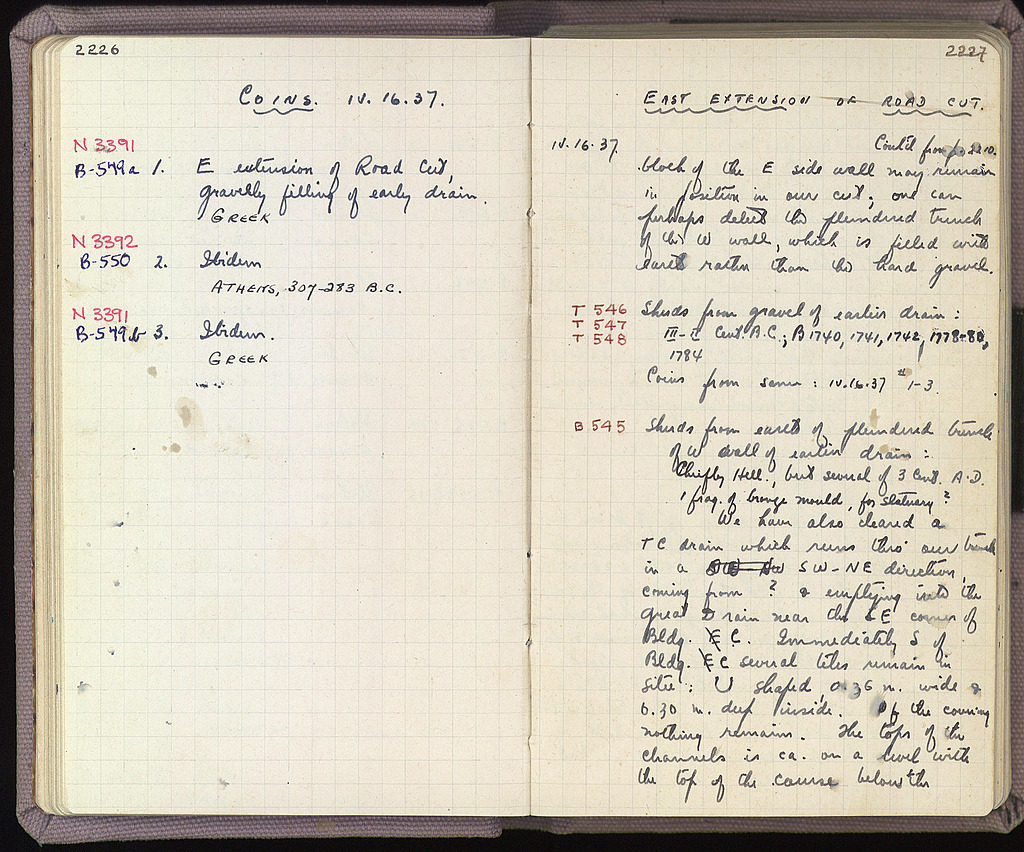 2226
COINS. IV.16.37.
N 3391
B-549a 1. E extension of Road Cut,
gravelly filling of early drain.
GREEK
N 3392
B-550 2. Ibidem
ATHENS, 307-283 B.C.
N 3391
B-549b 3. Ibidem.
GREEK
2227
EAST EXTENSION OF ROAD CUT.
IV.16.37 Cont'd from p. 2210.
block of the E side wall may remain
in position in our cut; one can
perhaps detect the plundered trench
of the W wall, which is filled with
earth rather than the hard gravel.
T 546 Sherds from gravel of earlier drain:
T 547
T 548 III-II Cent. B.C.; B1740, 1741, 1742, 1778-80,
1784
Coins from same: IV.16.37 #1-3.
B 545 Sherds from earth of plundered trench
of W wall of earlier drain:
Chiefly Hell., but several of 3 Cent. A.D.
1 frag. of bronze mould, for statuary?
We have also cleared a
TC drain which runs thro' our trench
in a SW-NE direction,
coming from ? & emptying into the
Great Drain near the SE corner of
Bldg. C. Immediately S of
Bldg. C several tiles remain in
situ: U shaped, 0.36 m. wide &
0.30 m. deep inside. Of the covering
nothing remains. The tops of the
channels is ca. on a level with
the top of the course below the